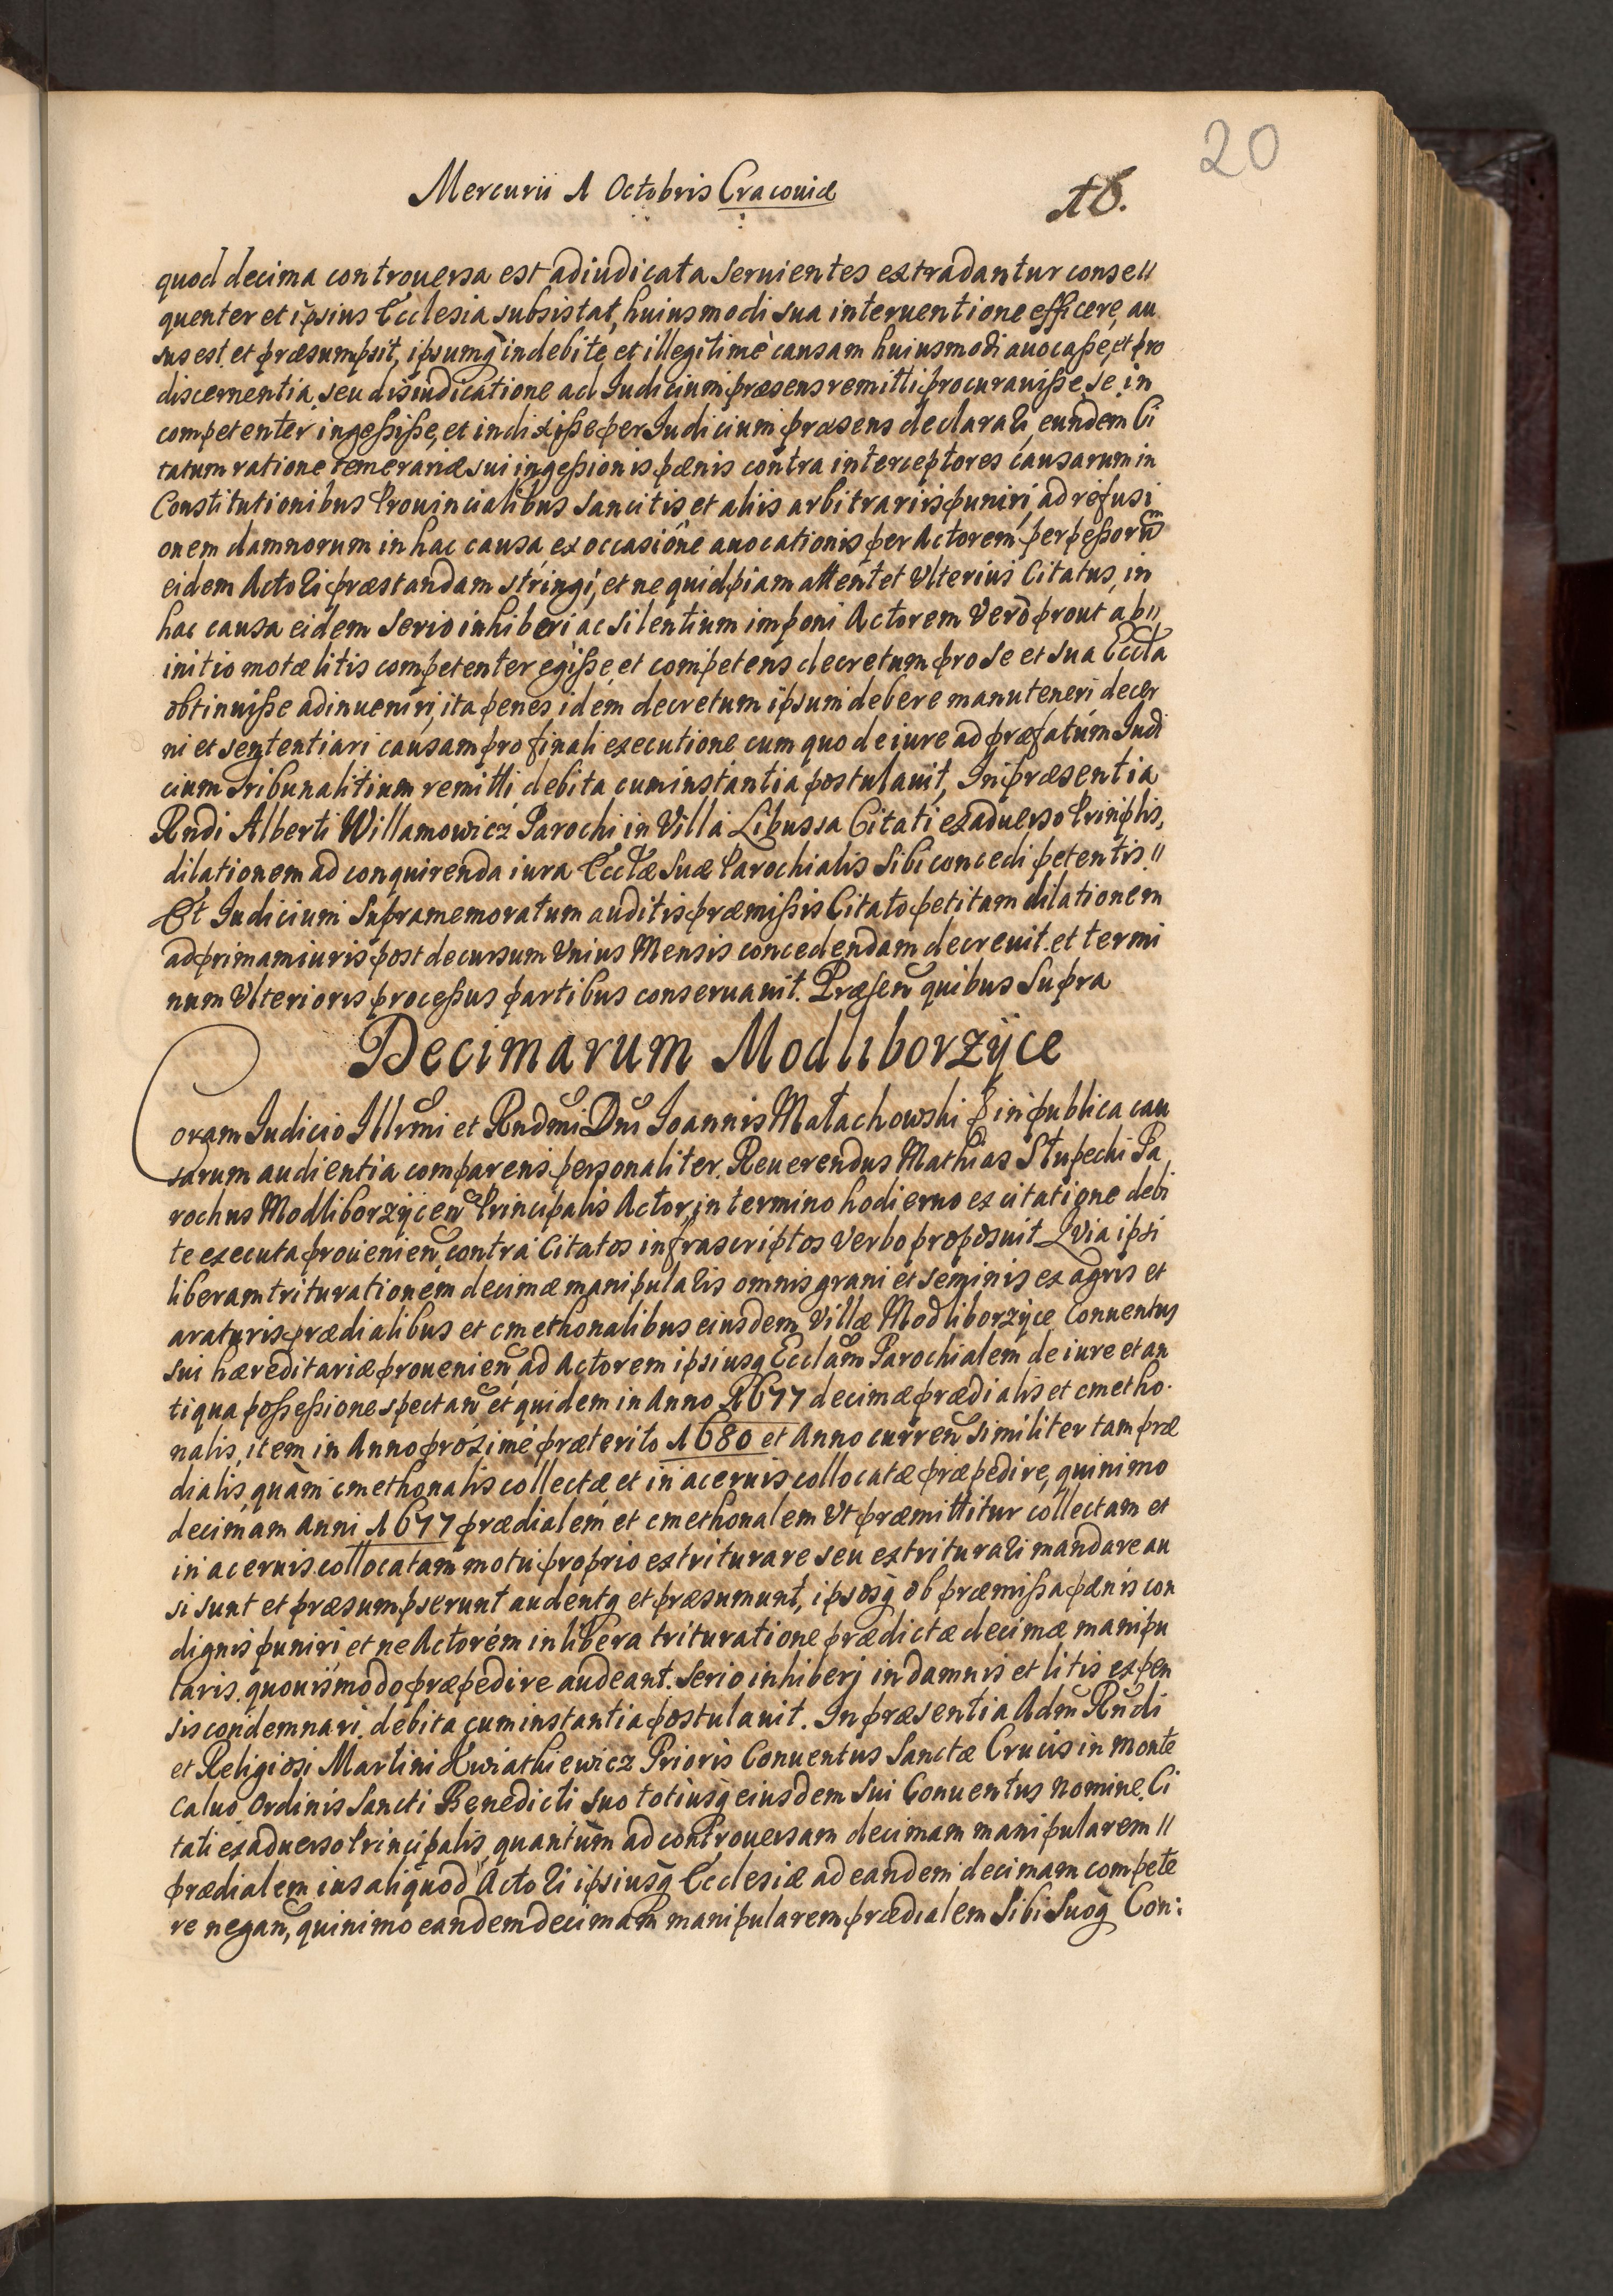 20
Mercurii 1 Octobris Cracouiæ
16.
quod decima controuersa est adiudicata seruientes extradantur conse//
quenter et ipsius Ecclesia subsistat, huiusmodi sua interuentione efficere, au
sus est et præsumpsit, ipsumq indebite et illegitimè causam huiusmodi auocasse, et pro
discernentia seu disiudicatione ad Iudicium præsens remitti procurauisse, se in
competenter ingessisse, et indixisse per Iudicium præsens declarari, eundem Ci
tatum ratione temerariæ sui ingessionis pænis contra interceptores causarum in
Constitutionibus Prouincialibus sancitis et aliis arbitrariis puniri, ad refusi
onem damnorum in hac causa, ex occasione auocationis per Actorem perpessorũ
eidem Actori præstandam stringi, et ne quidpiam attentet Vlterius Citatus, in
hac causa eidem serio inhiberi ac silentium imponi Actorem Verò prout ab//
initio motæ litis competenter egisse, et competens decretum pro se et sua Eccla
obtinuisse adinueniri, ita penes idem decretum ipsum debere manuteneri decer
ni et sententiari causam pro finali executione cum quo de iure ad præfatum Iudi
cium Tribunalitium remitti, debita cum instantia postulauit, In præsentia
Rndi Alberti Willamowicz Parochi in Villa Libussa Citati ex aduerso Prinplis,
dilationem ad conquirenda iura Ecclæ suæ Parochialis sibi concedi petentis //
Et Iudicium supramemoratum auditis præmissis Citato petitam dilationem
ad primam iuris post decursum Vnius Mensis concedendam decreuit et termi
num Vlterioris processus partibus conseruauit. Præsen quibus supra
Decimarum Modliborzÿce
Coram Iudicio Illrmi et Rndmi Dni Ioannis Małachowski &amp; in publica cau
sarum audientia comparens personaliter Reuerendus Mathias Słupecki Pa
rochus Modliborzÿcen Principalis Actor, in termino hodierno ex citatione debi
te executa prouenien, contra Citatos infrascriptos Verbo proposuit Quia ipsi
liberam triturationem decimæ manipularis omnis grani et seminis ex agris et
araturis prædialibus et cmethonalibus eiusdem Villæ Modliborzÿce Conuentus
sui hæreditariæ prouenien, ad Actorem ipsiusq Ecclam Parochialem de iure et an
tiqua possessione spectan et quidem in Anno 1677 decimæ prædialis et cmetho.
nalis, item in Anno proximè præterito 1680 et Anno curren similiter tam præ
dialis, quàm cmethonalis collectæ et in aceruis collocatæ præpedire, quinimo
decimam Anni 1677 prædialem et cmethonalem Vt præmittitur collectam et
in aceruis collocatam motu proprio extriturare seu extriturari mandare au
si sunt et præsumpserunt audentq et præsumunt, ipsosq ob præmissa pænis con
dignis puniri et ne Actorem in libera trituratione prædictæ decimæ manipu
laris quouismodo præpedire audeant. serio inhiberj in damnis et litis expen
sis condemnari, debita cum instantia postulauit. In præsentia Adm Rndi
et Religiosi Martini Kwiatkiewicz Prioris Conuentus Sanctæ Crucis in Monte
Caluo Ordinis Sancti Benedicti suo totiusq eiusdem sui Conuentus nomine Ci
tati ex aduerso Principalis, quantum ad controuersam decimam manipularem //
prædialem ius aliquod Actori ipsiusq Ecclesiæ ad eandem decimam compete
re negan, quinimo eandem decimam manipularem prædialem sibi suoq Con: